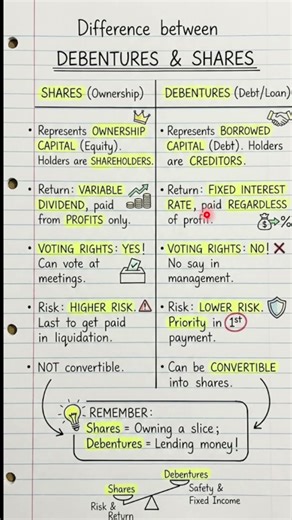 Difference between
DEBENTURES & SHARES
SHARES (Ownership)
• Represents OWNERSHIP
CAPITAL (Equity).
Holders are SHAREHOLDERS.
• Return: VARIABLE
DIVIDEND, paid
from PROFITS only.
• VOTING RIGHTS: YES!
Can vote at
meetings.
• Risk: HIGHER RISK.
Last to get paid
in liquidation.
• NOT convertible.
DEBENTURES (Debt/Loan)
• Represents BORROWED
CAPITAL (Debt). Holders
are CREDITORS.
• Return: FIXED INTEREST
RATE, paid REGARDLESS
of profit.
$ %
• VOTING RIGHTS: NO!
No say in
management.
• Risk: LOWER RISK.
Priority in 1st
payment.
• Can be CONVERTIBLE
into shares.
REMEMBER:
Shares = Owning a slice;
Debentures = Lending money!
Debentures
Shares
Safety &
Fixed Income
Risk &
Return